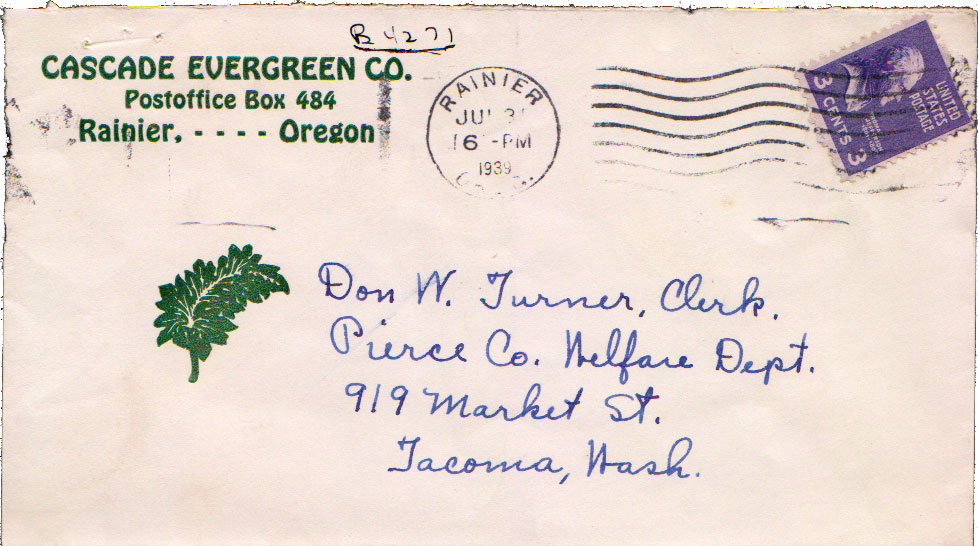 B4271
CASCADE EVERGREEN CO.
Postoffice Box 484
Rainier, - - - - Oregon
RAINIER
6 -PM
1939
3 CENTS 3
UNITED
STATES
POSTAGE
Don W. Turner, Clerk.
Pierce Co. Welfare Dept.
919 Market St.
Tacoma, Wash.